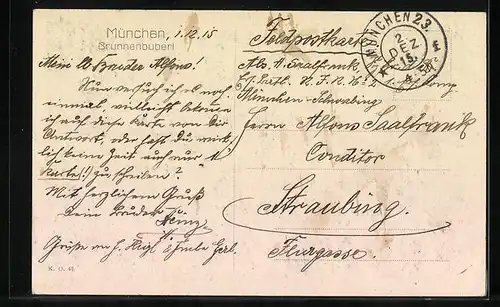 München, 1.12.15
Brunnenbuberl
Mein lb Bruder Alfons!
Nun versuch ich es noch
einmal, vielleicht bekomme
ich auf diese Karte von Dir
Antwort, oder hast Du wirk-
lich keine Zeit auch nur 1
Karte (!) zu schreiben?
Mit herzlichem Gruß
Dein Bruder
Grüße an
K. O. 41
Feldpostkarte
MÜNCHEN 23.
2.
DEZ
15.
Abs. H. Saalfrank
München-Schwabing
Herrn Alfons Saalfrank
Conditor
Straubing.
Flurgasse.